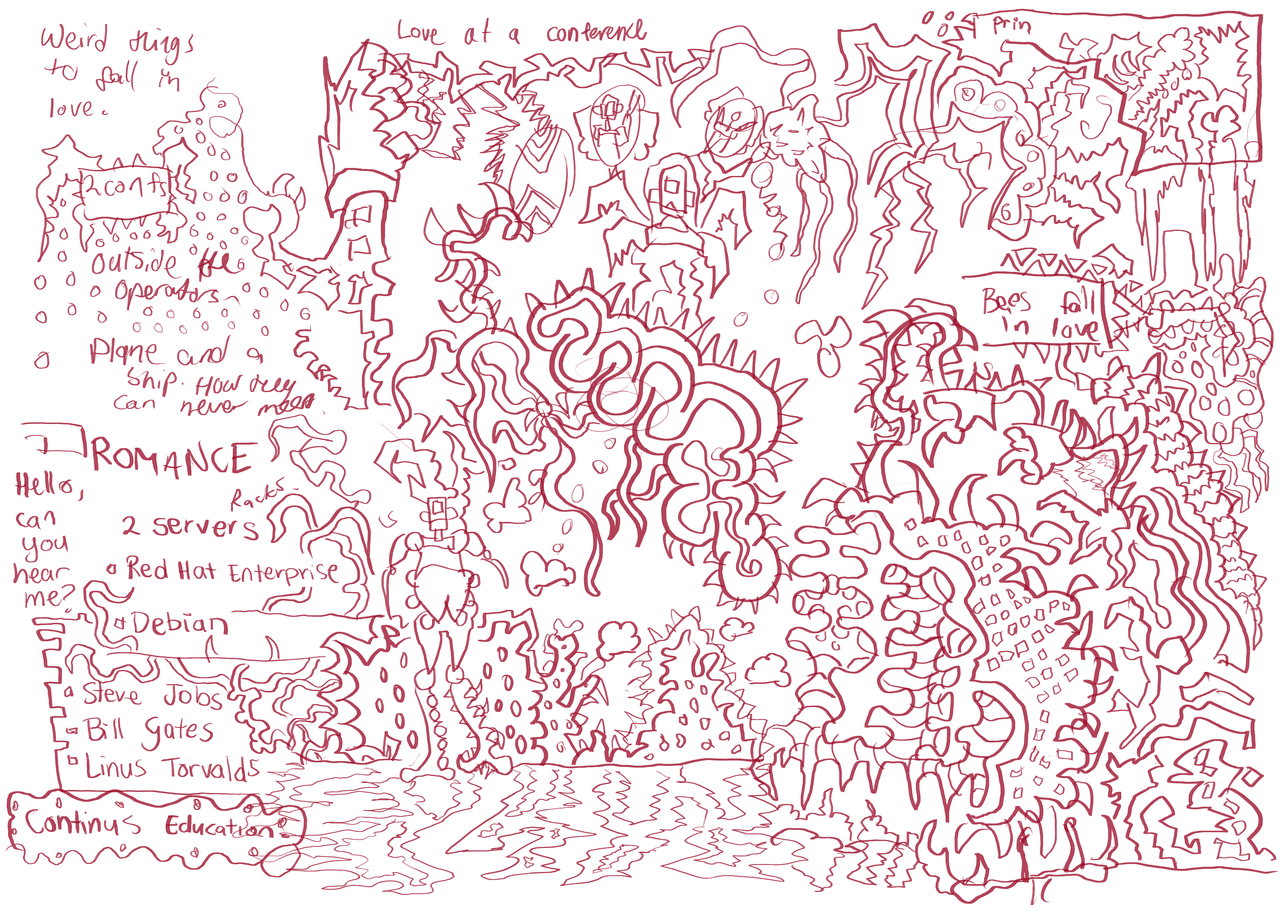 Weird things
to fall in
love.
Love at a conference
Prin
outside the
Operators
Plane and a
ship. How they
can never meet.
Bees fall
In love
ROMANCE
Hello,
can
you
hear
me?
Racks.
2 servers
Red Hat Enterprise
Debian
Steve Jobs
Bill Gates
Linus Torvalds
Continus Education